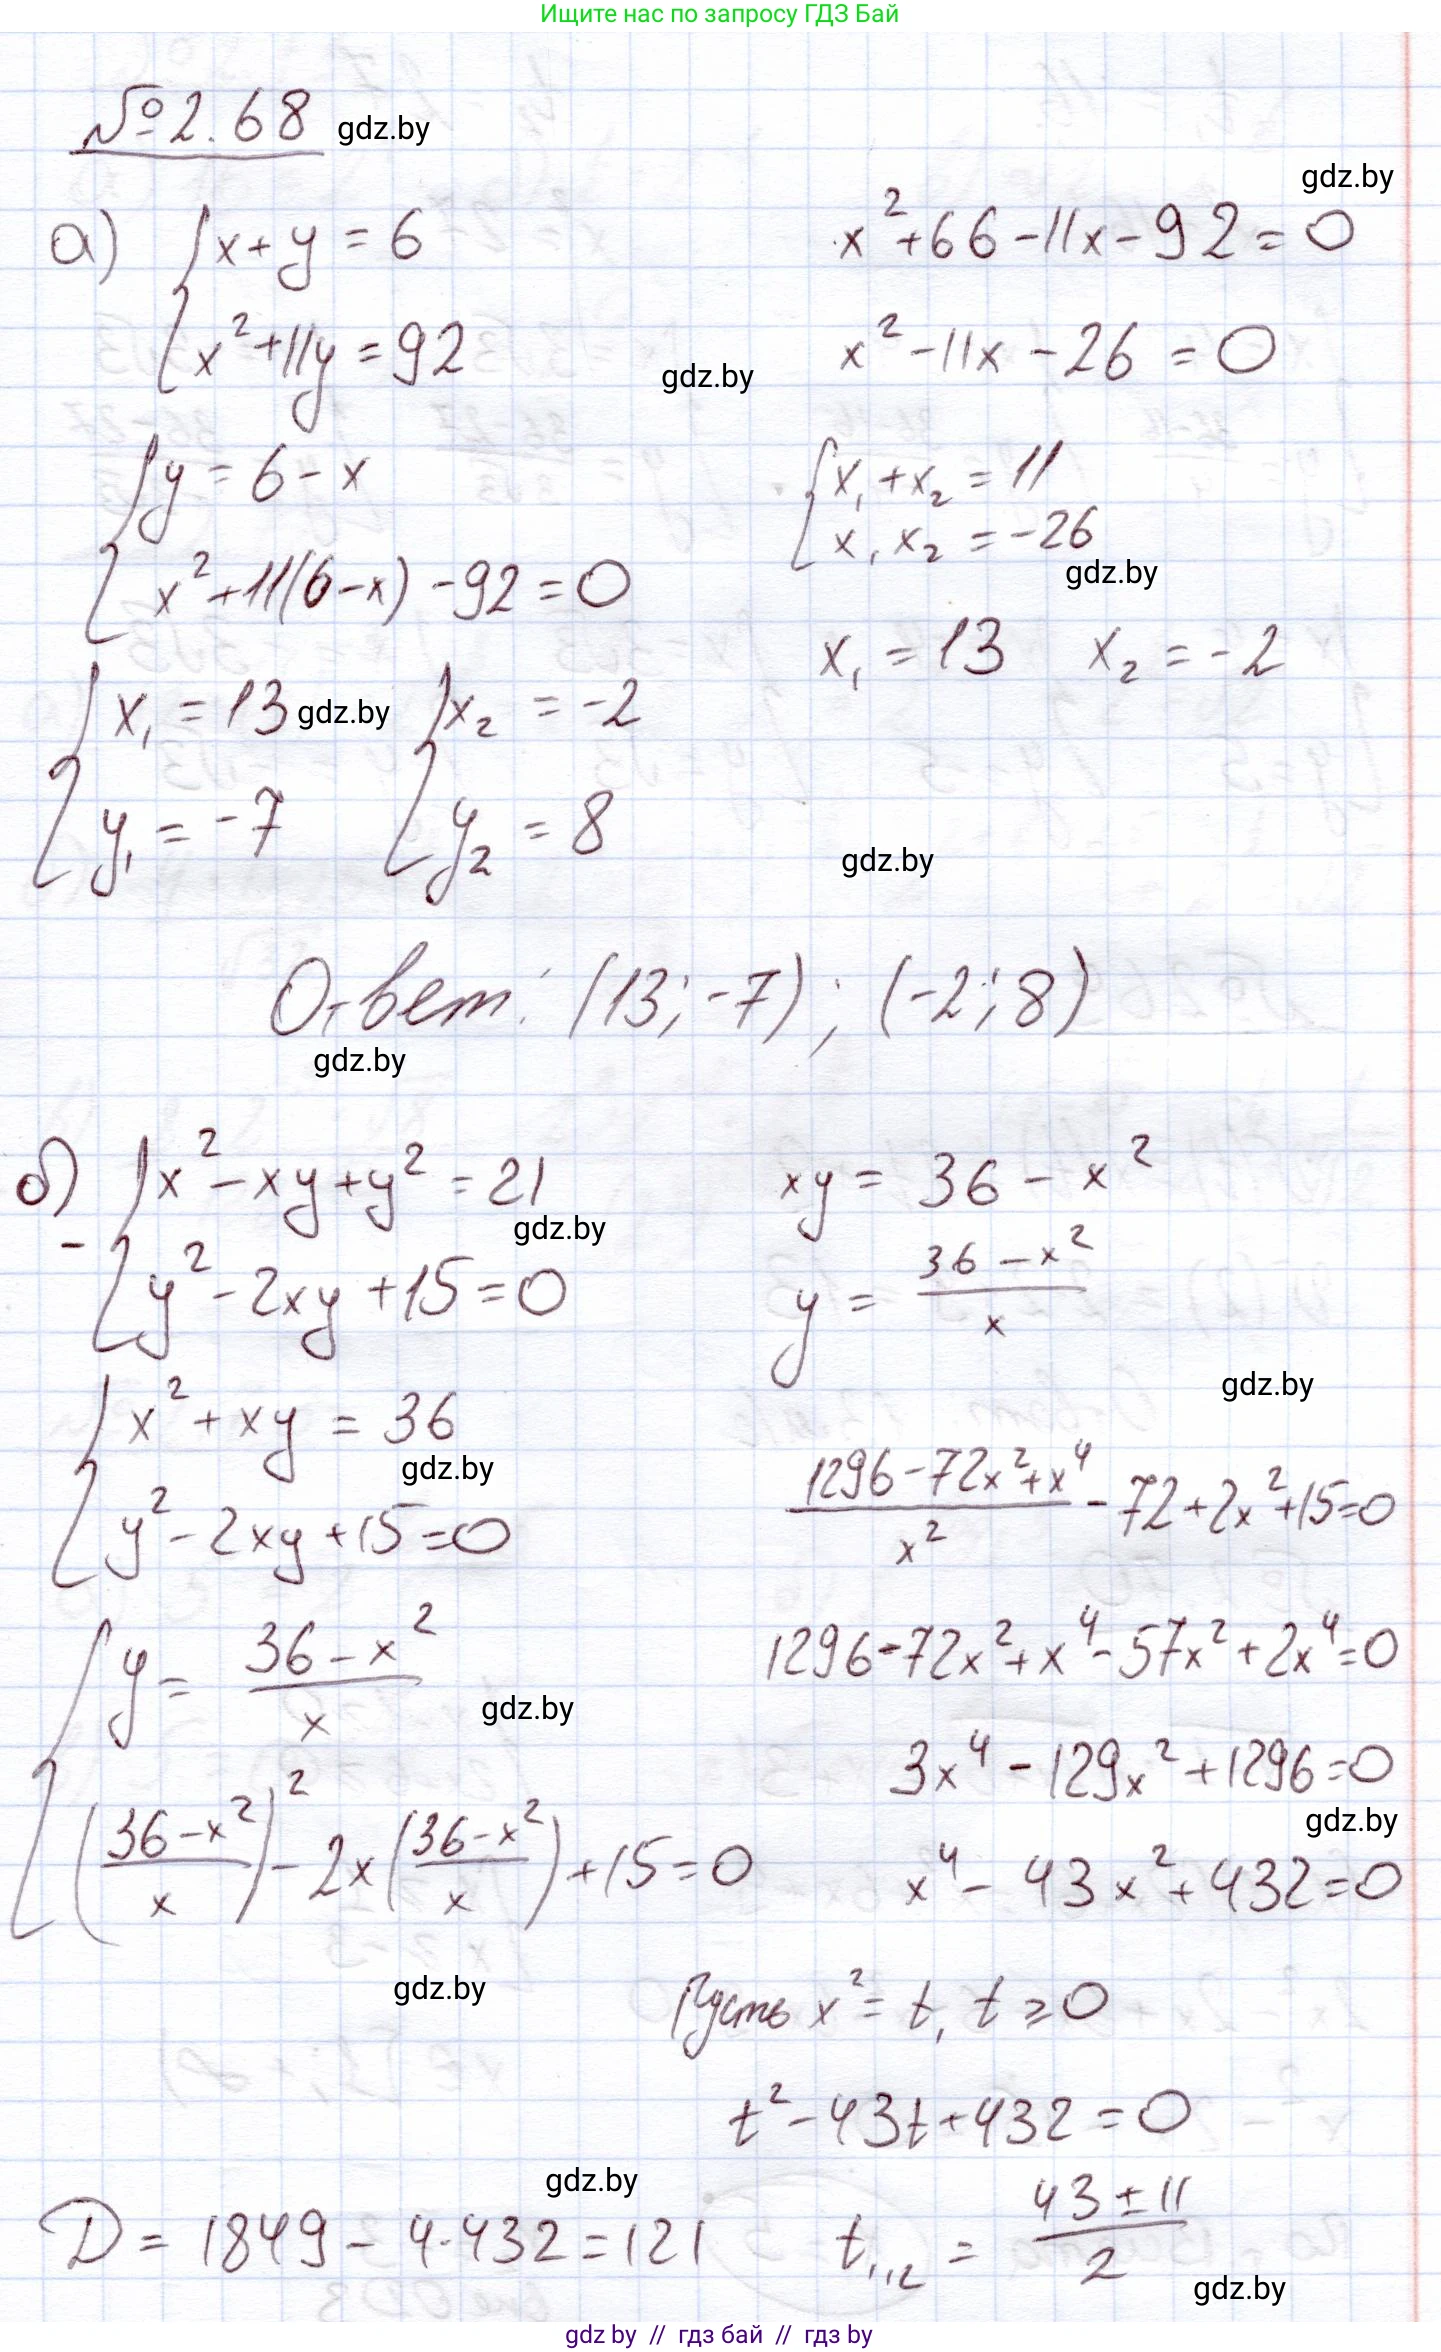 Ищите нас по запросу ГДЗ Бай
№2.68 gdz.by
gdz.by
а) { x + y = 6
x² + 11y = 92
gdz.by
{ y = 6 - x
x² + 11(6 - x) - 92 = 0
x² + 66 - 11x - 92 = 0
x² - 11x - 26 = 0
{ x₁ + x₂ = 11
x₁ x₂ = -26
gdz.by
x₁ = 13 x₂ = -2
{ x₁ = 13 gdz.by { x₂ = -2
y₁ = -7 y₂ = 8
gdz.by
Ответ: (13; -7); (-2; 8)
gdz.by
б) { x² - xy + y² = 21
gdz.by
- y² - 2xy + 15 = 0
{ x² + xy = 36
gdz.by
y² - 2xy + 15 = 0
{ y = (36 - x²)/x
gdz.by
((36 - x²)/x)² - 2x((36 - x²)/x) + 15 = 0
xy = 36 - x²
y = (36 - x²)/x
gdz.by
(1296 - 72x² + x⁴)/x² - 72 + 2x² + 15 = 0
1296 - 72x² + x⁴ - 57x² + 2x⁴ = 0
3x⁴ - 129x² + 1296 = 0
gdz.by
x⁴ - 43x² + 432 = 0
gdz.by
Пусть x² = t, t ⩾ 0
t² - 43t + 432 = 0
gdz.by
D = 1849 - 4·432 = 121 t₁,₂ = (43 ± 11)/2
gdz.by
gdz.by // гдз бай // гдз by